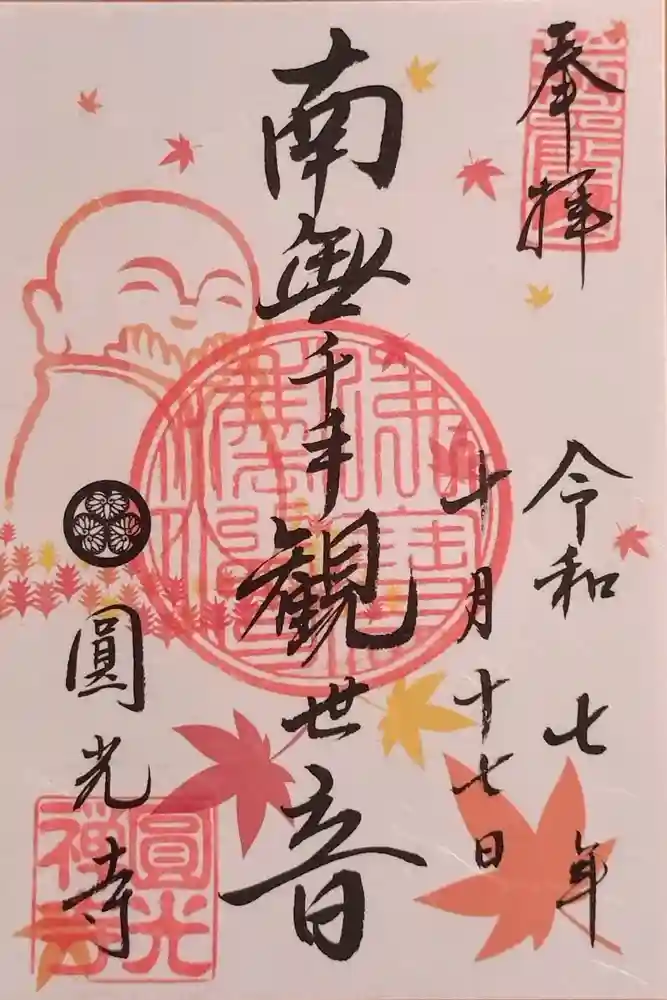 奉拝
令和七年
十月十七日
南無千手観世音
圓光寺
佛法僧寶
圓光
禅寺